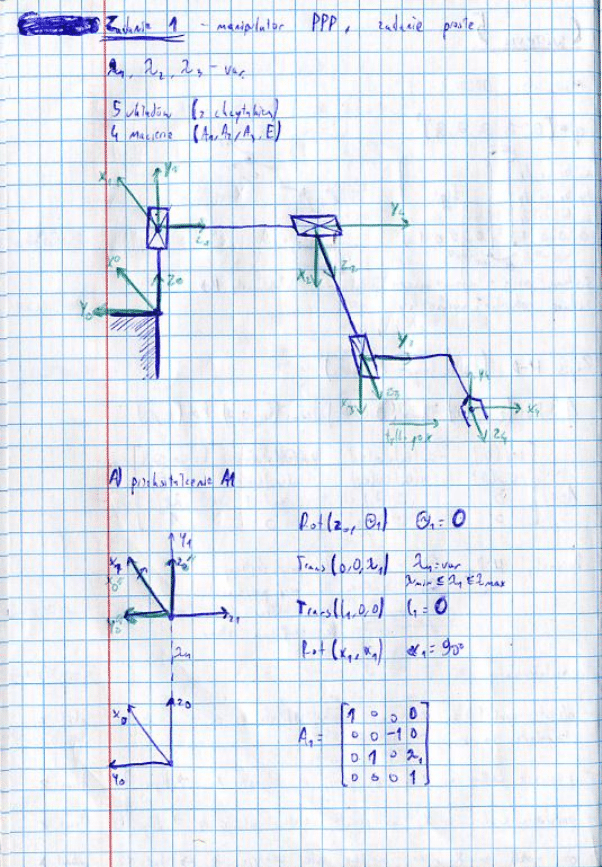 Zadanie 1 - manipulator PPP, zadanie proste
λ₁, λ₂, λ₃ - var
5 układów (z chwytakiem)
4 macierze (A₁, A₂, A₃, E)
x₁ y₁
z₁ y₂
x₀ z₀
x₂ z₂
y₀
y₃
x₃ z₃
y₄ x₄ z₄
tylko
A) przekształcenie A1
Rot(z₀, Θ₁) Θ₁ = 0
Trans(0,0,λ₁) λ₁ = var
λmin ≤ λ₁ ≤ λmax
Trans(l₁,0,0) l₁ = 0
Rot(x₁, α₁) α₁ = 90°
y₁
x₁ z₀''
x₀''
y₀'' z₁
λ₁
x₀ z₀
y₀
A₁ =
1 0 0 0
0 0 -1 0
0 1 0 λ₁
0 0 0 1